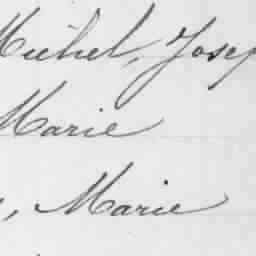 Michel, Josep
Marie
, Marie